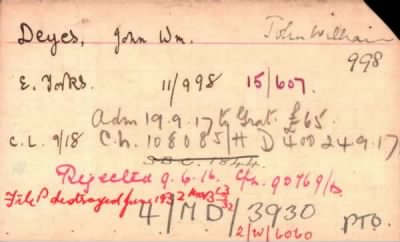 Deyes, John Wm. John William
998
E. Yorks. 11/998 15/607.
Adm 19.9.17 to Grat. £65.
C.L. 9/18 Ch. 108085/H D 400 24.9.17
S.D.C. 1844
Rejected 9.6.16. 90769/
File P destroyed June 1932
4/MD/3930 PTO.
2/W/6060